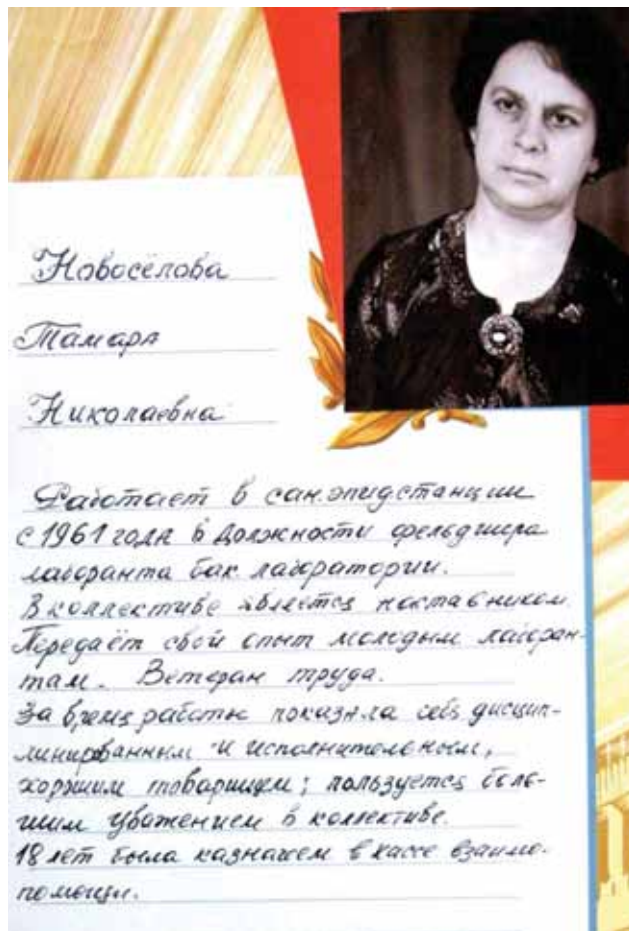 Новосёлова
Тамара
Николаевна
Работает в сан.эпидстанции
с 1961 года в должности фельдшера
лаборанта бак лаборатории.
В коллективе является наставником.
Передаёт свой опыт молодым лаборан-
там. Ветеран труда.
За время работы показала себя дисцип-
линированным и исполнительным,
хорошим товарищем; пользуется боль-
шим уважением в коллективе.
18 лет была казначеем в кассе взаимо-
помощи.